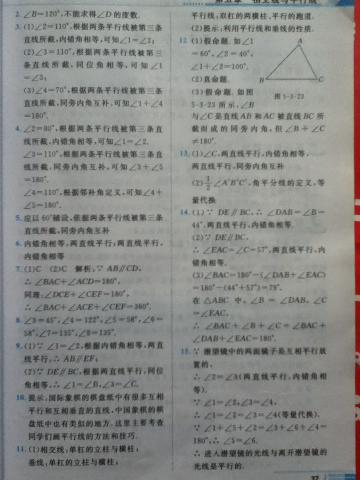 2. ∠B=120°,不能求得∠D的度数.
3. (1)∠2=110°,根据两条平行线被第三条
直线所截,内错角相等,可知∠1=∠2;
(2)∠3=110°,根据两条平行线被第三
条直线所截,同位角相等,可知∠1
=∠3;
(3)∠4=70°,根据两条平行线被第三条
直线所截,同旁内角互补,可知∠1+∠4
=180°.
4. ∠2=80°,根据两条平行线被第三条直
线所截,内错角相等,可知∠1=∠2.
∠3=110°,根据两条平行线被第三条直
线所截,同旁内角互补,可知∠3+∠5
=180°.
∠4=110°,根据邻补角定义,可知∠4+
∠5=180°.
5. 应以60°铺设,依据两条平行线被第三条
直线所截,同旁内角互补
6. 内错角相等,两直线平行;两直线平行,
内错角相等
7. (1)C (2)C 解析:∵ AB∥CD,
∴ ∠BAC+∠ACD=180°,
同理:∠DCE+∠CEF=180°,
∴ ∠BAC+∠ACE+∠CEF=360°.
8. ∠3=45°,∠4=122°,∠5=58°,∠6=
58°,∠7=135°,∠8=135°.
9. (1)∵ ∠1=∠2,根据内错角相等,两直
线平行,∴ AB∥EF;
(2)∵ DE∥BC,根据两直线平行,同位
角相等,∴ ∠1=∠B,∠3=∠C.
10. 提示:国际象棋的棋盘纸中有很多互相
平行和互相垂直的直线,中国象棋的棋
盘纸中也有类似的地方.这里主要考查
同学们画平行线的方法和技巧.
11. (1)相交线:单杠的立柱与横柱;
垂线:单杠的立柱与横柱;
平行线:双杠的两横柱、平行的跑道.
(2)提示:利用平行线和垂线的性质.
12. (1)假命题.如∠1
=60°,∠2=40°,
∠1+∠2=100°.
(2)真命题.
(3)假命题.如图
5-3-23所示,∠B
与∠C是直线AB和AC被直线BC所
截而成的同旁内角,但∠B+∠C
≠180°.
A
B
C
图5-3-23
13. (1)∠C,两直线平行,内错角相等,
两直线平行,同旁内角互补
(2)1/2 ∠A'B'C',角平分线的定义,等
量代换
14. (1)∵ DE∥BC,∴ ∠DAB=∠B=
44°,两直线平行,内错角相等.
(2)∵ DE∥BC,
∴ ∠EAC=∠C=57°,两直线平行,内
错角相等.
(3)∠BAC=180°-(∠DAB+∠EAC)
=180°-(44°+57°)=79°.
在△ABC中,∠B=∠DAB,∠C
=∠EAC,
∴ ∠BAC+∠B+∠C=∠BAC+
∠DAB+∠EAC=180°.
15. ∵ 潜望镜中的两面镜子是互相平行放
置的,
∴ ∠2=∠3(两直线平行,内错角相
等).
∵ ∠1=∠2,∠3=∠4,
∴ ∠1=∠2=∠3=∠4(等量代换).
∵ ∠1+∠5+∠2=∠3+∠6+∠4=
180°,∴ ∠5=∠6.
∴ 进入潜望镜的光线与离开潜望镜的
光线是平行的.
37